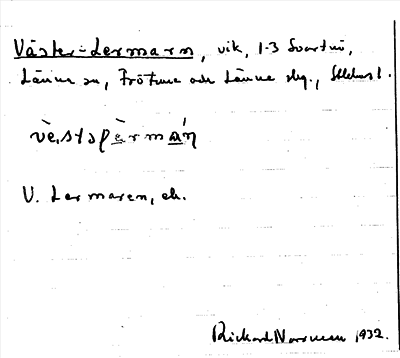 Väster-Lermaren, vik, 1-3 Svartnö,
Länna sn, Frötuna och Länna skg., Sthlms l.
vè̀stəḷèrmáṇ
V. Lermaren, ek.
Rickard Norrman 1932.